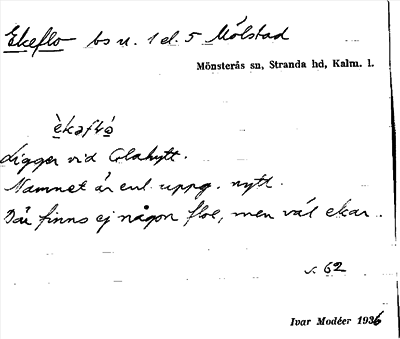 Ekeflo bs u. 1 el. 5 Mölstad
Mönsterås sn, Stranda hd, Kalm. l.
Ligger vid Olahytt.
Namnet är enl. uppg. nytt.
Där finns ej någon floe, men väl ekar.
s. 62
Ivar Modéer 1936